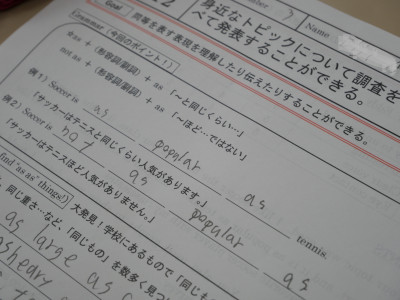 2
身近なトピックについて調査を
べて発表することができる。
Name
Goal 同等を表す表現を理解したり伝えたりすることができる。
Grammar (今回のポイント!)
as + (形容詞/副詞) + as 「～と同じくらい…」
not as + (形容詞/副詞) + as 「～ほど…ではない」
例1) Soccer is as popular as tennis.
「サッカーはテニスと同じくらい人気があります。」
例2) Soccer is not as popular as
「サッカーはテニスほど人気がありません。」
find "as as" things!) 大発見!学校にあるもので「同じ
同じ重さ…など、「同じもの」を数多く見つ
as large as
as heavy